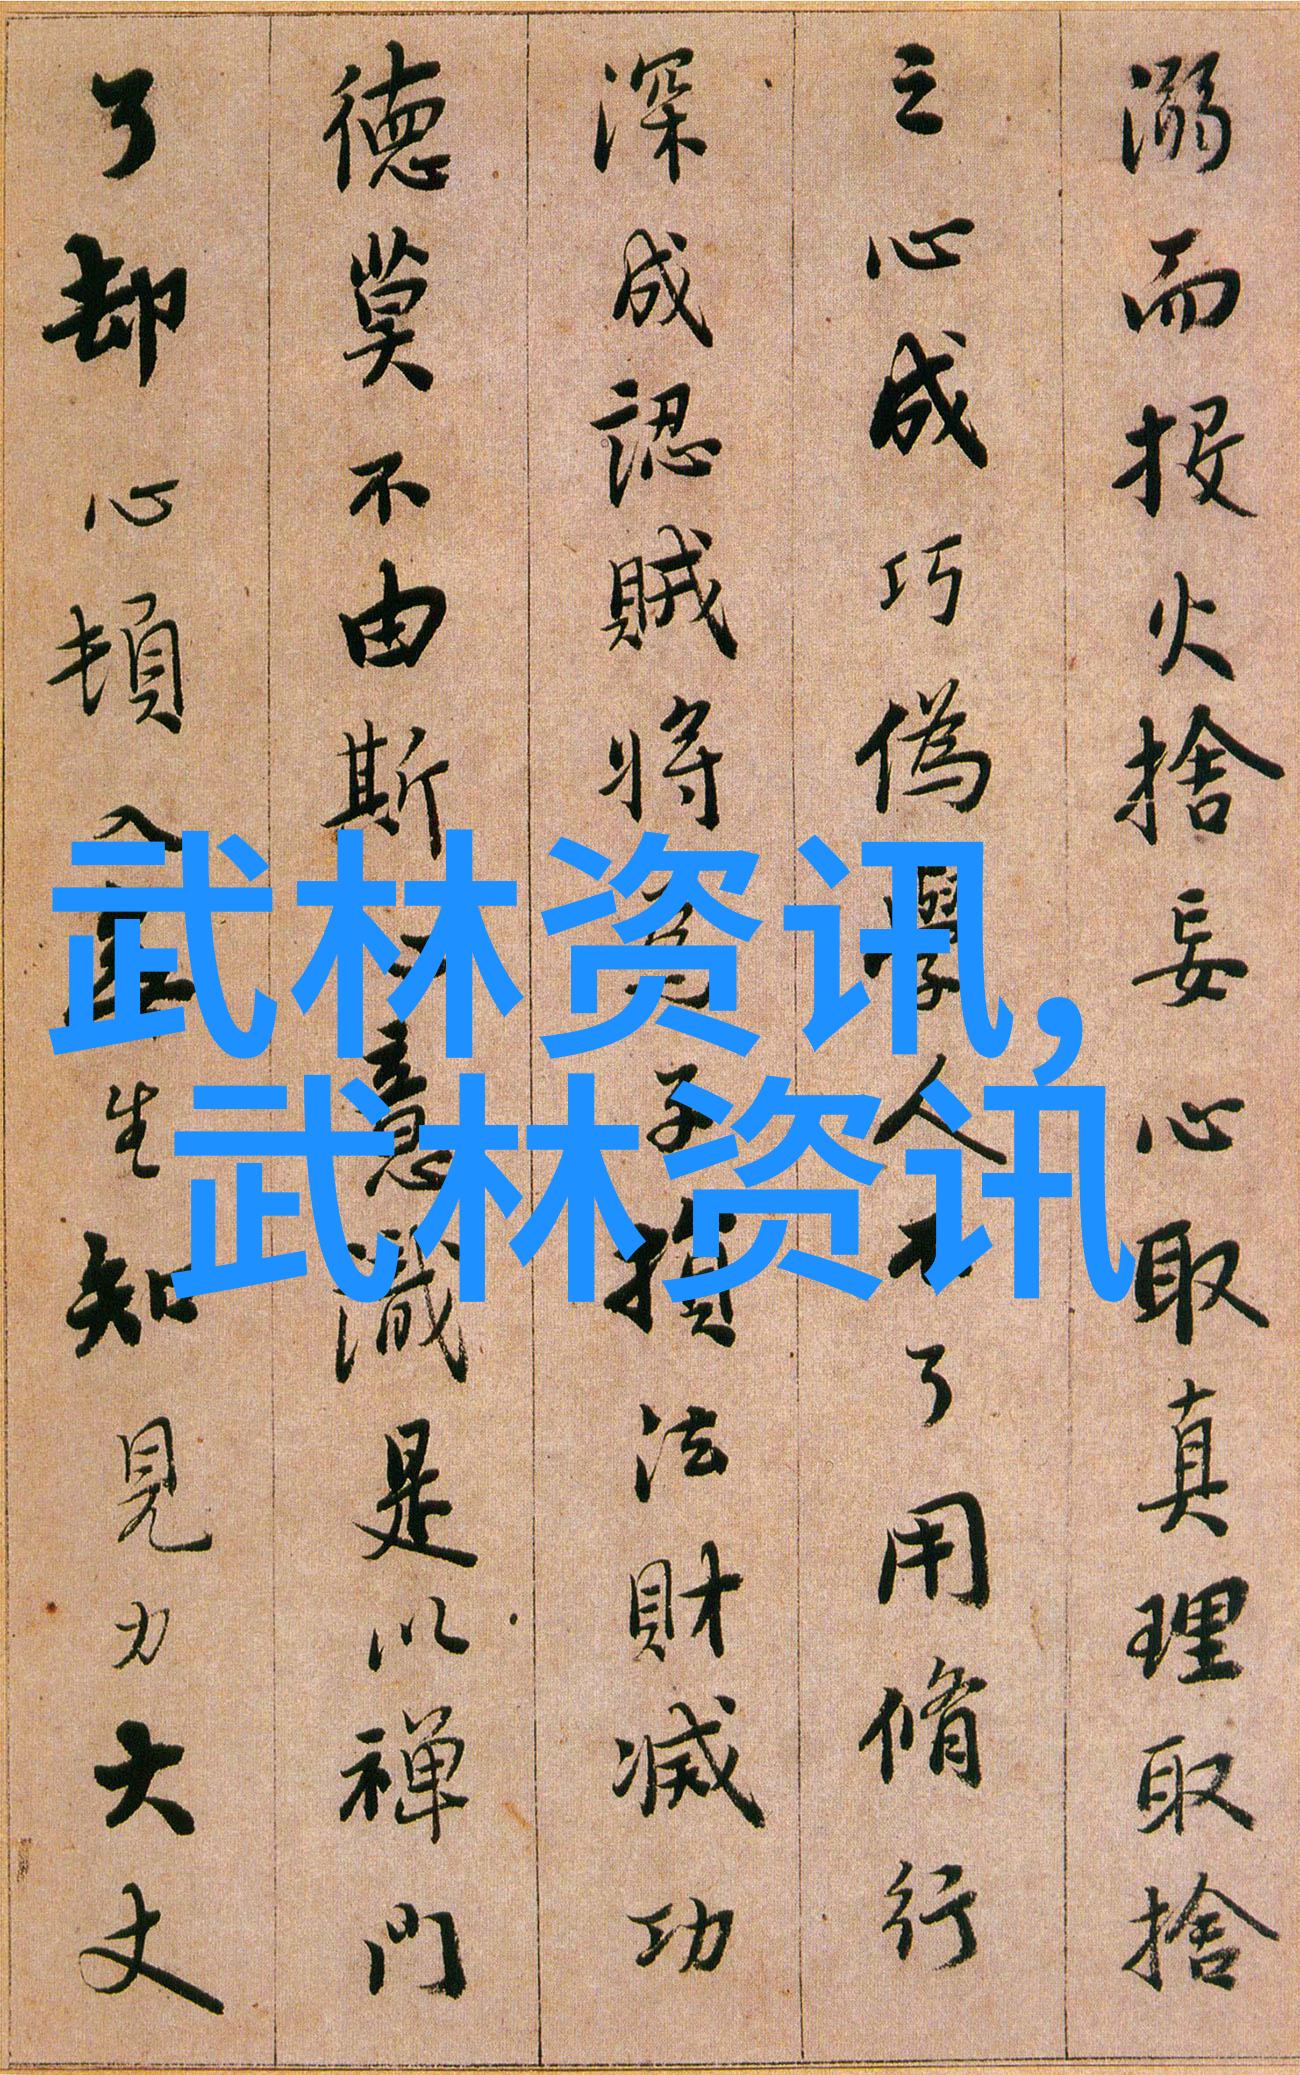 溺而投火捨妄心取真理取捨
之心成巧偽學人不了用脩行
深成認賊將為子損法財滅功
德莫不由斯心意識是以禅門
了却心頓入無生知見力大丈
武林资讯,
武林资讯